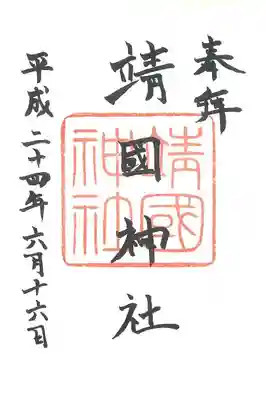 奉拝
靖國神社
靖國神社
平成二十四年六月十六日